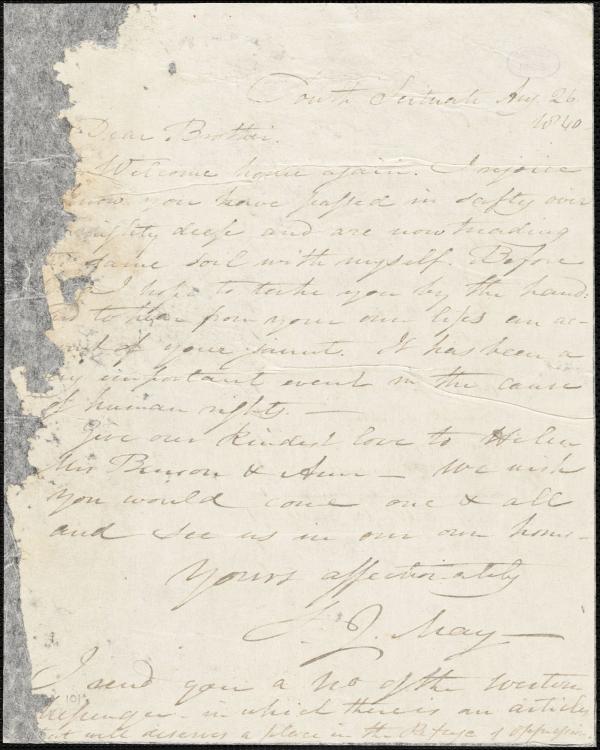 South Scituate Aug. 26
1840
Dear Brother.
Welcome home again. I rejoice
know you have passed in safty over
mighty deep and are now treading
same soil with myself. Before
I hope to take you by the hand:
to hear from your own lips an ac-
of your jaunt. It has been a
important event in the cause
of human rights. —
Give our kindest love to Helen
Mrs Benson & Ann — We wish
you would come one & all
and see us in our own home —
Yours affectionately
S. J. May —
I send you a No of the Western
Messenger – in which there is an article
well deserves a place in the Refuge of Oppression.
101